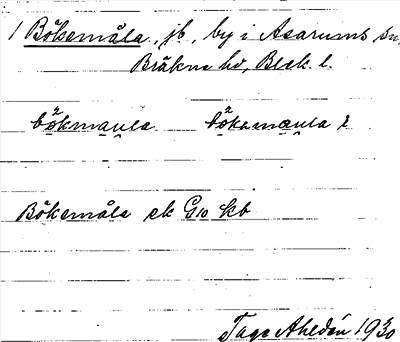 1 Bökemåla, jb, by i Asarums sn,
Bräkne hd, Blek. l.
bökmaula bökemaula l
Bökemåla ek G10 kb
Tage Ahldén 1930